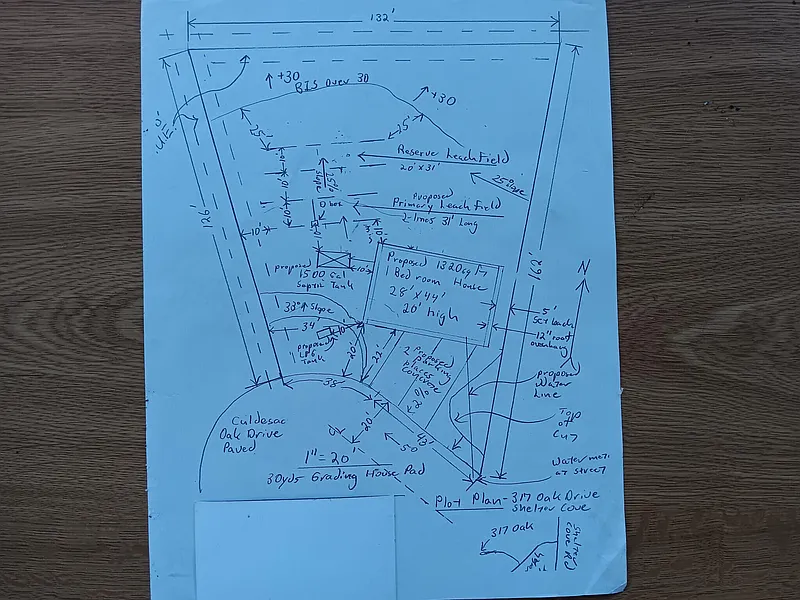 132'
+30
BIS Over 30
+30
25'
Reserve Leachfield
20' x 31'
10'
10'
25% slope
25% slope
Proposed
Primary Leachfield
2-lines 31' Long
D box
10'
126'
162'
10'
proposed
1500 Gal
Septic Tank
10'
Proposed 1320 sq
1 Bedroom House
28' x 44'
20' high
N
5'
Set back
12" roof
overhang
33% slope
34'
10'
proposed
Tank
20'
22'
2 Proposed
parking
places
concrete
38'
proposed
Water
Line
Top
of
Cut
Culdesac
Oak Drive
Paved
20'
50
43'
1" = 20'
30yds Grading House Pad
Water meter
at street
Plot Plan - 317 Oak Drive
Shelter Cove
317 Oak
Shelter
Cove Rd